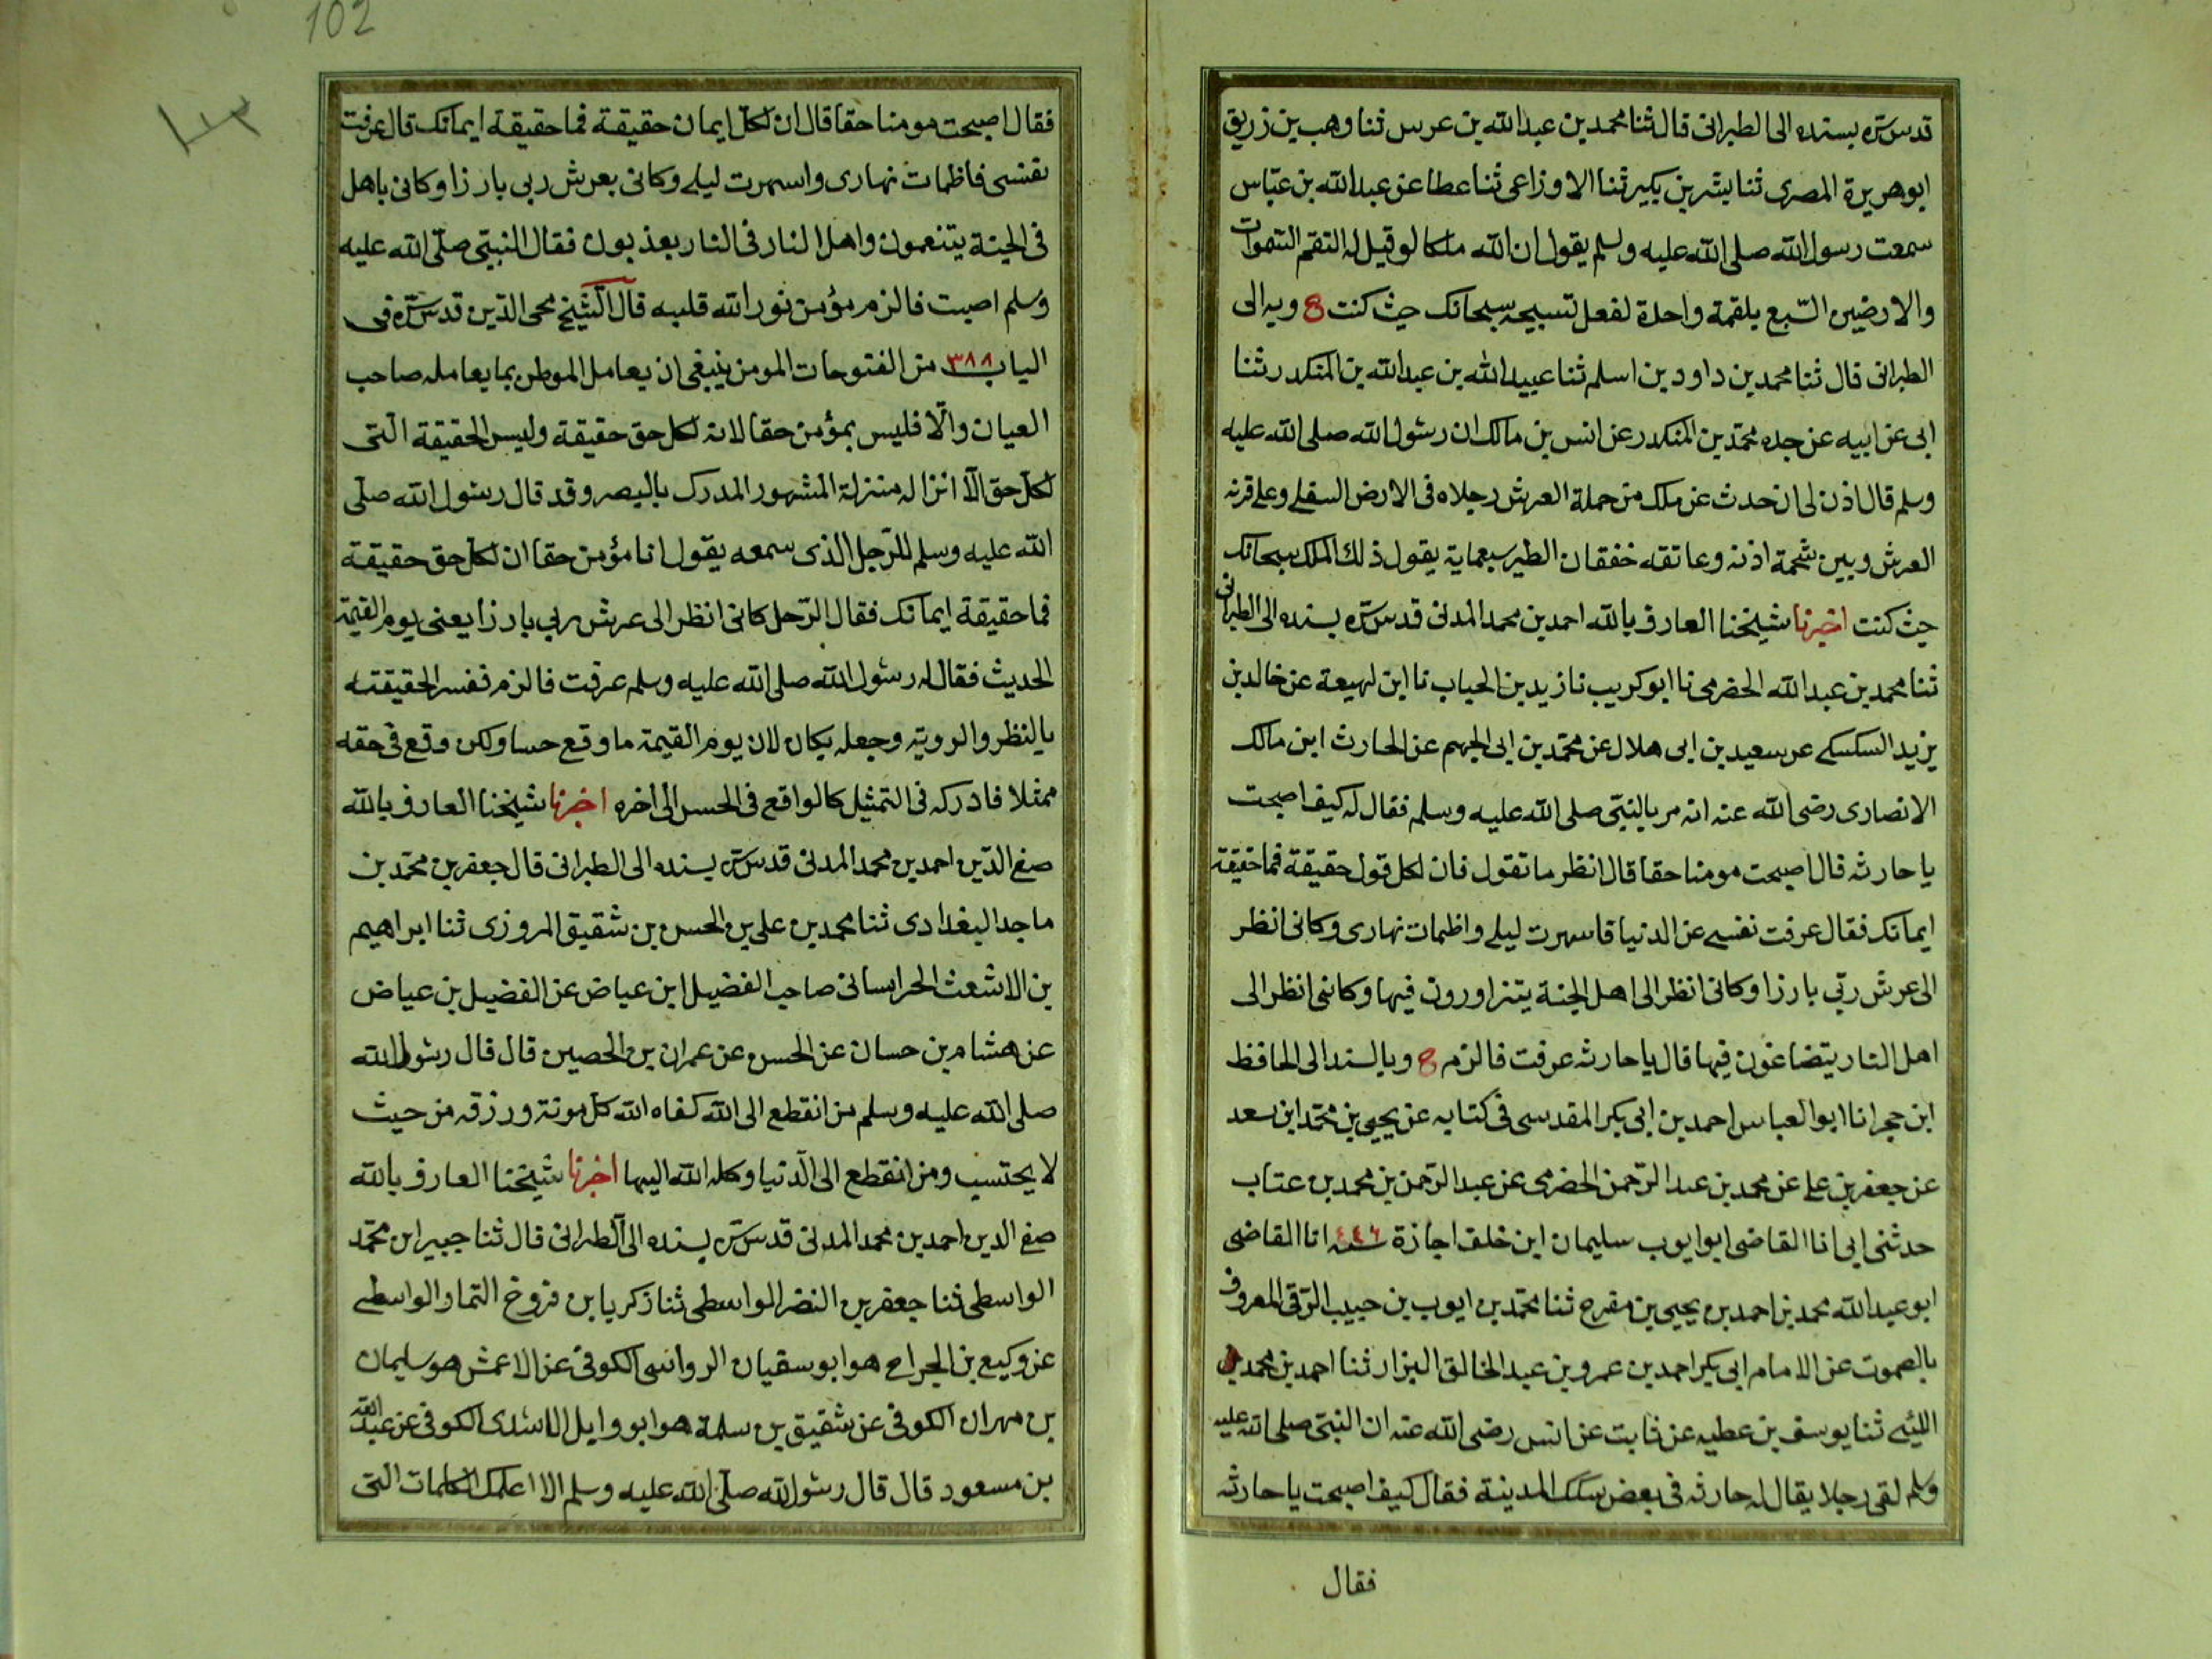 قدس سره بسنده الى الطبرانى قال ثنا محمد بن عبدالله بن عرس ثنا وهب بن زريق
ابو هريرة المصرى ثنا بشر بن بكير ثنا الاوزاعى ثنا عطا عن عبدالله بن عباس
سمعت رسول الله صلى الله عليه وسلم يقول ان الله ملكا لو قيل له التقم السموات
والارضين السبع بلقمة واحدة لفعل تسبيحه سبحانك حيث كنت ح وبه الى
الطبرانى قال ثنا محمد بن داود بن اسلم ثنا عبيدالله بن عبدالله بن المنكدر ثنا
ابى عن ابيه عن جده محمد بن المنكدر عن انس بن مالك ان رسول الله صلى الله عليه
وسلم قال اذن لى ان احدث عن ملك من حملة العرش رجلاه فى الارض السفلى وعلى قرنه
العرش وبين شحمة اذنه وعاتقه خفقان الطير سبعماية يقول ذلك الملك سبحانك
حيث كنت اخبرنا شيخنا العارف بالله احمد بن محمد المدنى قدس سره بسنده الى الطبرانى
ثنا محمد بن عبدالله الحضرمى نا ابو كريب نا زيد بن الحباب نا ابن لهيعة عن خالد بن
يزيد السكسكى عن سعيد بن ابى هلال عن محمد بن ابى الجهم عن الحارث ابن مالك
الانصارى رضى الله عنه انه مر بالنبى صلى الله عليه وسلم فقال له كيف اصبحت
يا حارثه قال اصبحت مومنا حقا قال انظر ما تقول فان لكل قول حقيقة فما حقيقة
ايمانك فقال عرفت نفسى عن الدنيا فاسهرت ليلى واظمات نهارى وكانى انظر
الى عرش ربى بارزا وكانى انظر الى اهل الجنة يتزاورون فيها وكاننى انظر الى
اهل النار يتضاغون فيها قال يا حارثه عرفت فالزم ح وبالسند الى الحافظ
ابن حجر انا ابو العباس احمد بن ابى بكر المقدسى فى كتابه عن يحيى بن محمد ابن سعد
عن جعفر بن على عن محمد بن عبد الرحمن الحضرمى عن عبد الرحمن بن محمد بن عتاب
حدثنى ابى انا القاضى ابو ايوب سليمان ابن خلف اجازة سنه ٤٤٦ انا القاضى
ابو عبدالله محمد بن احمد بن يحيى بن مفرج ثنا محمد بن ايوب بن حبيب الرقى المعروف
بالصموت عن الامام ابى بكر احمد بن عمرو بن عبد الخالق البزار ثنا احمد بن محمد بن
الليثى ثنا يوسف بن عطيه عن ثابت عن انس رضى الله عنه ان النبى صلى الله عليه
وسلم لقى رجلا يقال له حارثه فى بعض سكك المدينة فقال كيف اصبحت يا حارثه
فقال
102
١٠٢
فقال اصبحت مومنا حقا قال ان لكل ايمان حقيقة فما حقيقة ايمانك قال عرفت
نفسى فاظمات نهارى واسهرت ليلى وكانى بعرش ربى بارزا وكانى باهل
فى الجنة يتنعمون واهل النار فى النار يعذبون فقال النبى صلى الله عليه
وسلم اصبت فالزم مؤمن نور الله قلبه قال الشيخ محى الدين قدس سره فى
الباب ٣٨٨ من الفتوحات المومن ينبغى ان يعامل الموطن بما يعامله صاحب
العيان والا فليس بمؤمن حقا لانه لكل حق حقيقة وليس الحقيقة التى
لكل حق الا انزاله منزلة المشهور المدرك بالبصر وقد قال رسول الله صلى
الله عليه وسلم للرجل الذى سمعه يقول انا مؤمن حقا ان لكل حق حقيقة
فما حقيقة ايمانك فقال الرجل كانى انظر الى عرش ربى بارزا يعنى يوم القيمة
الحديث فقال له رسول الله صلى الله عليه وسلم عرفت فالزم ففسر الحقيقة
بالنظر والروية وجعله بكان لان يوم القيمة ما وقع حسا ولكن وقع فى حقه
ممثلا فادركه فى التمثيل كالواقع فى الحس الى اخره اخبرنا شيخنا العارف بالله
صفى الدين احمد بن محمد المدنى قدس سره بسنده الى الطبرانى قال جعفر بن محمد بن
ماجد البغدادى ثنا محمد بن على بن الحسن بن شقيق المروزى ثنا ابراهيم
بن الاشعث الخراسانى صاحب الفضيل ابن عياض عن الفضيل بن عياض
عن هشام بن حسان عن الحسن عن عمران بن الحصين قال قال رسول الله
صلى الله عليه وسلم من انقطع الى الله كفاه الله كل مونة ورزقه من حيث
لا يحتسب ومن انقطع الى الدنيا وكله الله اليها اخبرنا شيخنا العارف بالله
صفى الدين احمد بن محمد المدنى قدس سره بسنده الى الطبرانى قال ثنا جبير ابن محمد
الواسطى ثنا جعفر بن النضر الواسطى ثنا زكريا بن فروخ التمار الواسطى
عن وكيع بن الجراح هو ابو سفيان الرواسى الكوفى عن الاعمش هو سليمان
بن مهران الكوفى عن شقيق بن سلمة هو ابو وايل الاسدى الكوفى عن عبد الله
بن مسعود قال قال رسول الله صلى الله عليه وسلم الا اعلمك الكلمات التى